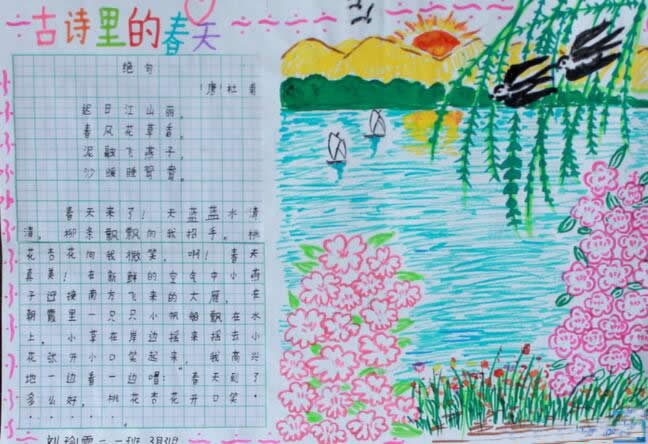 古诗里的春天
绝句
(唐)杜甫
迟日江山丽，
春风花草香。
泥融飞燕子，
沙暖睡鸳鸯。
春天来了！天蓝蓝水清
清，柳条飘飘向我招手。桃
花杏花向我微笑，啊！春天
真美！在新鲜的空气中小燕
子迎接南方飞来的大雁，在
朝霞里一只只小帆船飘在水
上。小草在岸边摇来摇去小
花张开小口笑起来，我高兴
地一边看一边唱："春天到了
多么好，桃花杏花开口笑·
· · · · ·
刘 雪 一 一班 3月31日